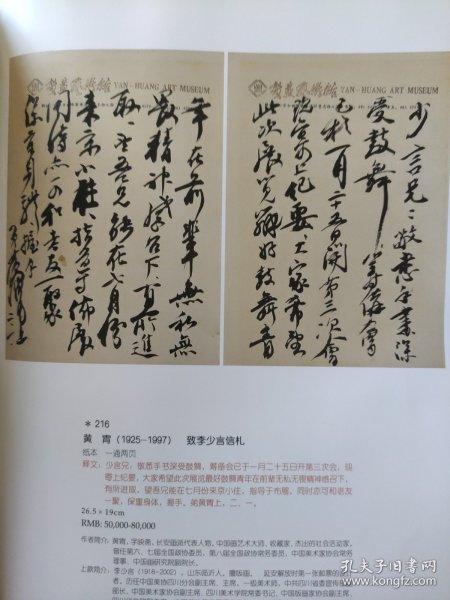 炎黄艺术馆 YAN-HUANG ART MUSEUM
少言兄：敬悉手書深
受鼓舞 籌備會
已於一月二十五日開第三次會
現寄上紀要、大家希望
此次展覽辦好鼓舞青
炎黄艺术馆 YAN-HUANG ART MUSEUM
年在前輩無私無
畏精神感召下、有所進
取、望吾兄能在七月份
來京小住、指導于佈展
同時亦可和老友一聚
保重身體 握手
弟黄胄上 二、一
* 216
黄 胄 (1925-1997) 致李少言信札
纸本 一通两页
释文：少言兄，敬悉手书深受鼓舞，筹备会已于一月二十五日开第三次会，现
寄上纪要，大家希望此次展览最好鼓舞青年在前辈无私无畏精神感召下，
有所进取，望吾兄能在七月份来京小住，指导于布展，同时亦可和老友一
聚，保重身体，握手。弟黄胄上，二、一。
26.5×19cm
RMB: 50,000-80,000
作者简介：黄胄，字映斋，长安画派代表人物，中国画艺术大师、收藏家、杰出的社会活动家。
曾任第六、七届全国政协委员，第八届全国政协常务委员，中国美术家协会常务
理事、中国画研究院副院长。
上款简介：李少言（1918-2002），山东临沂人。擅版画。延安解放时第一张邮票的
者。历任中国美协四川分会副主席、主席，一级美术师，中共四川省委宣传部
副主席，四川美术学院常务书记，中国版画家协会副主席
孔夫子旧书网